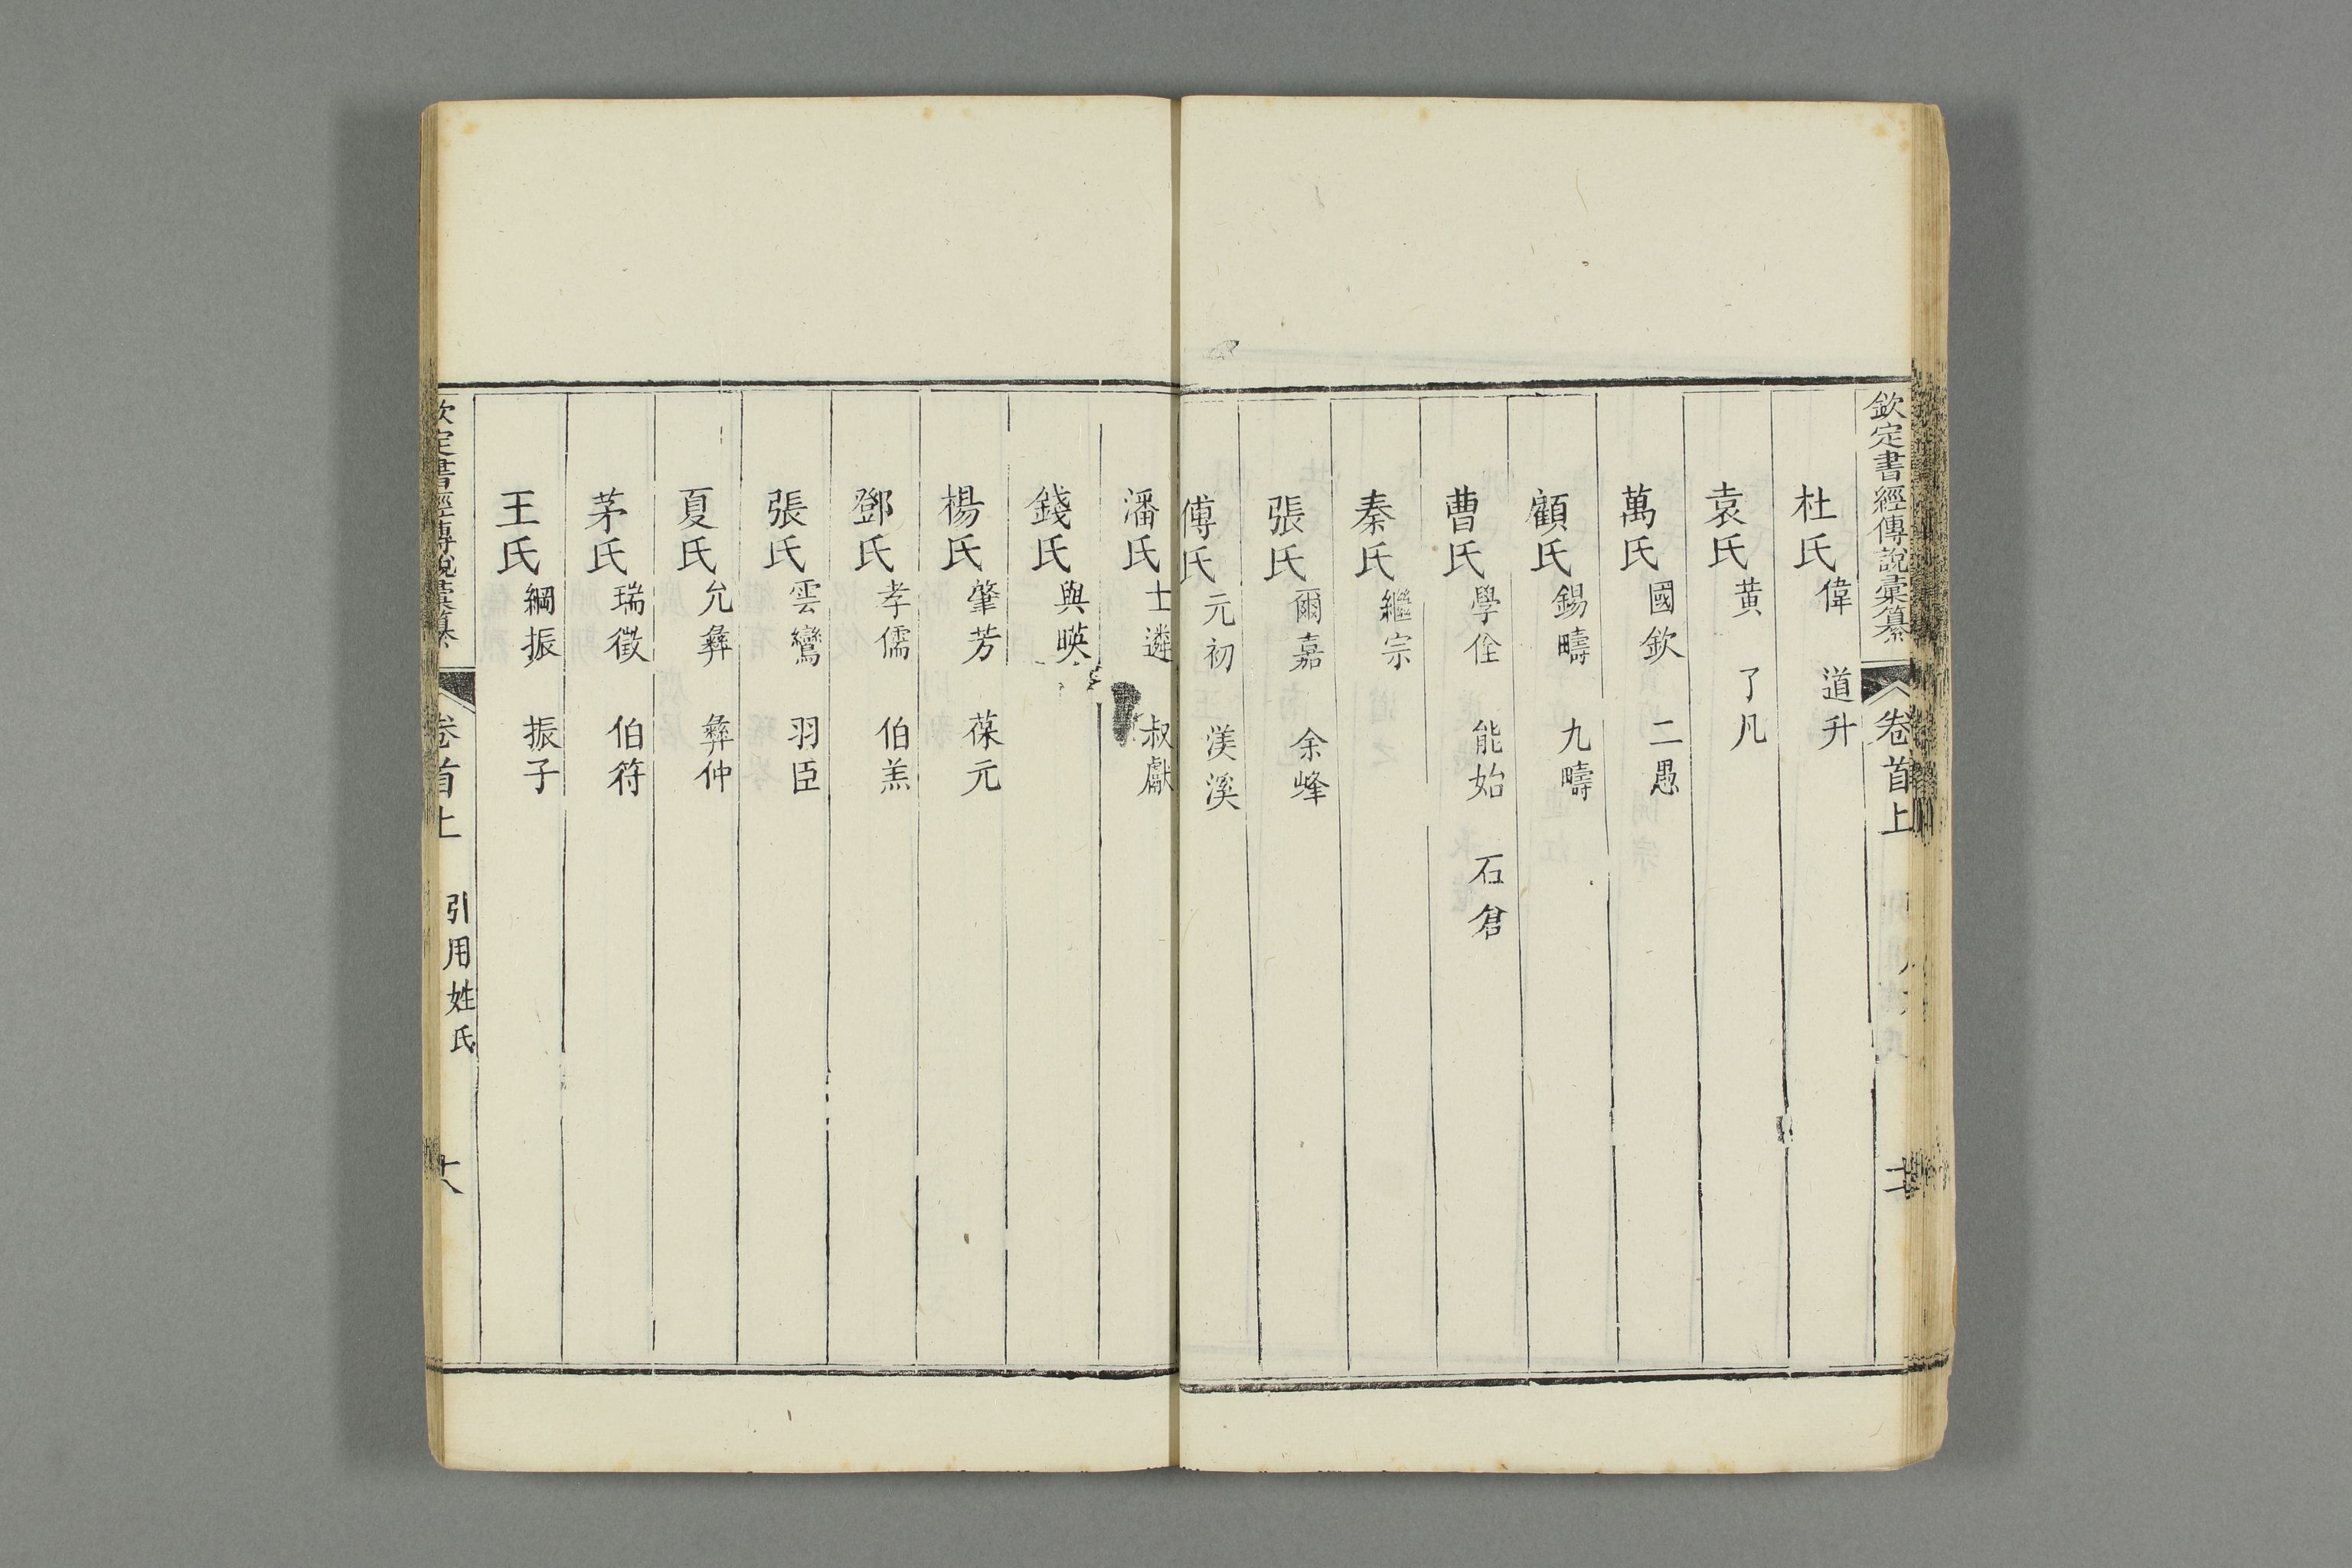 欽定書經傳說彙纂 卷首上
杜氏偉 道升
袁氏黃 了凡
萬氏國欽 二愚
顧氏錫疇 九疇
曹氏學佺 能始 石倉
秦氏繼宗
張氏爾嘉 余峰
傅氏元初 渼溪
潘氏士遴 叔獻
錢氏與暎
楊氏肇芳 葆元
鄧氏孝儒 伯羔
張氏雲鸞 羽臣
夏氏允彝 彝仲
茅氏瑞徵 伯符
王氏綱振 振子
欽定書經傳說彙纂 卷首上 引用姓氏